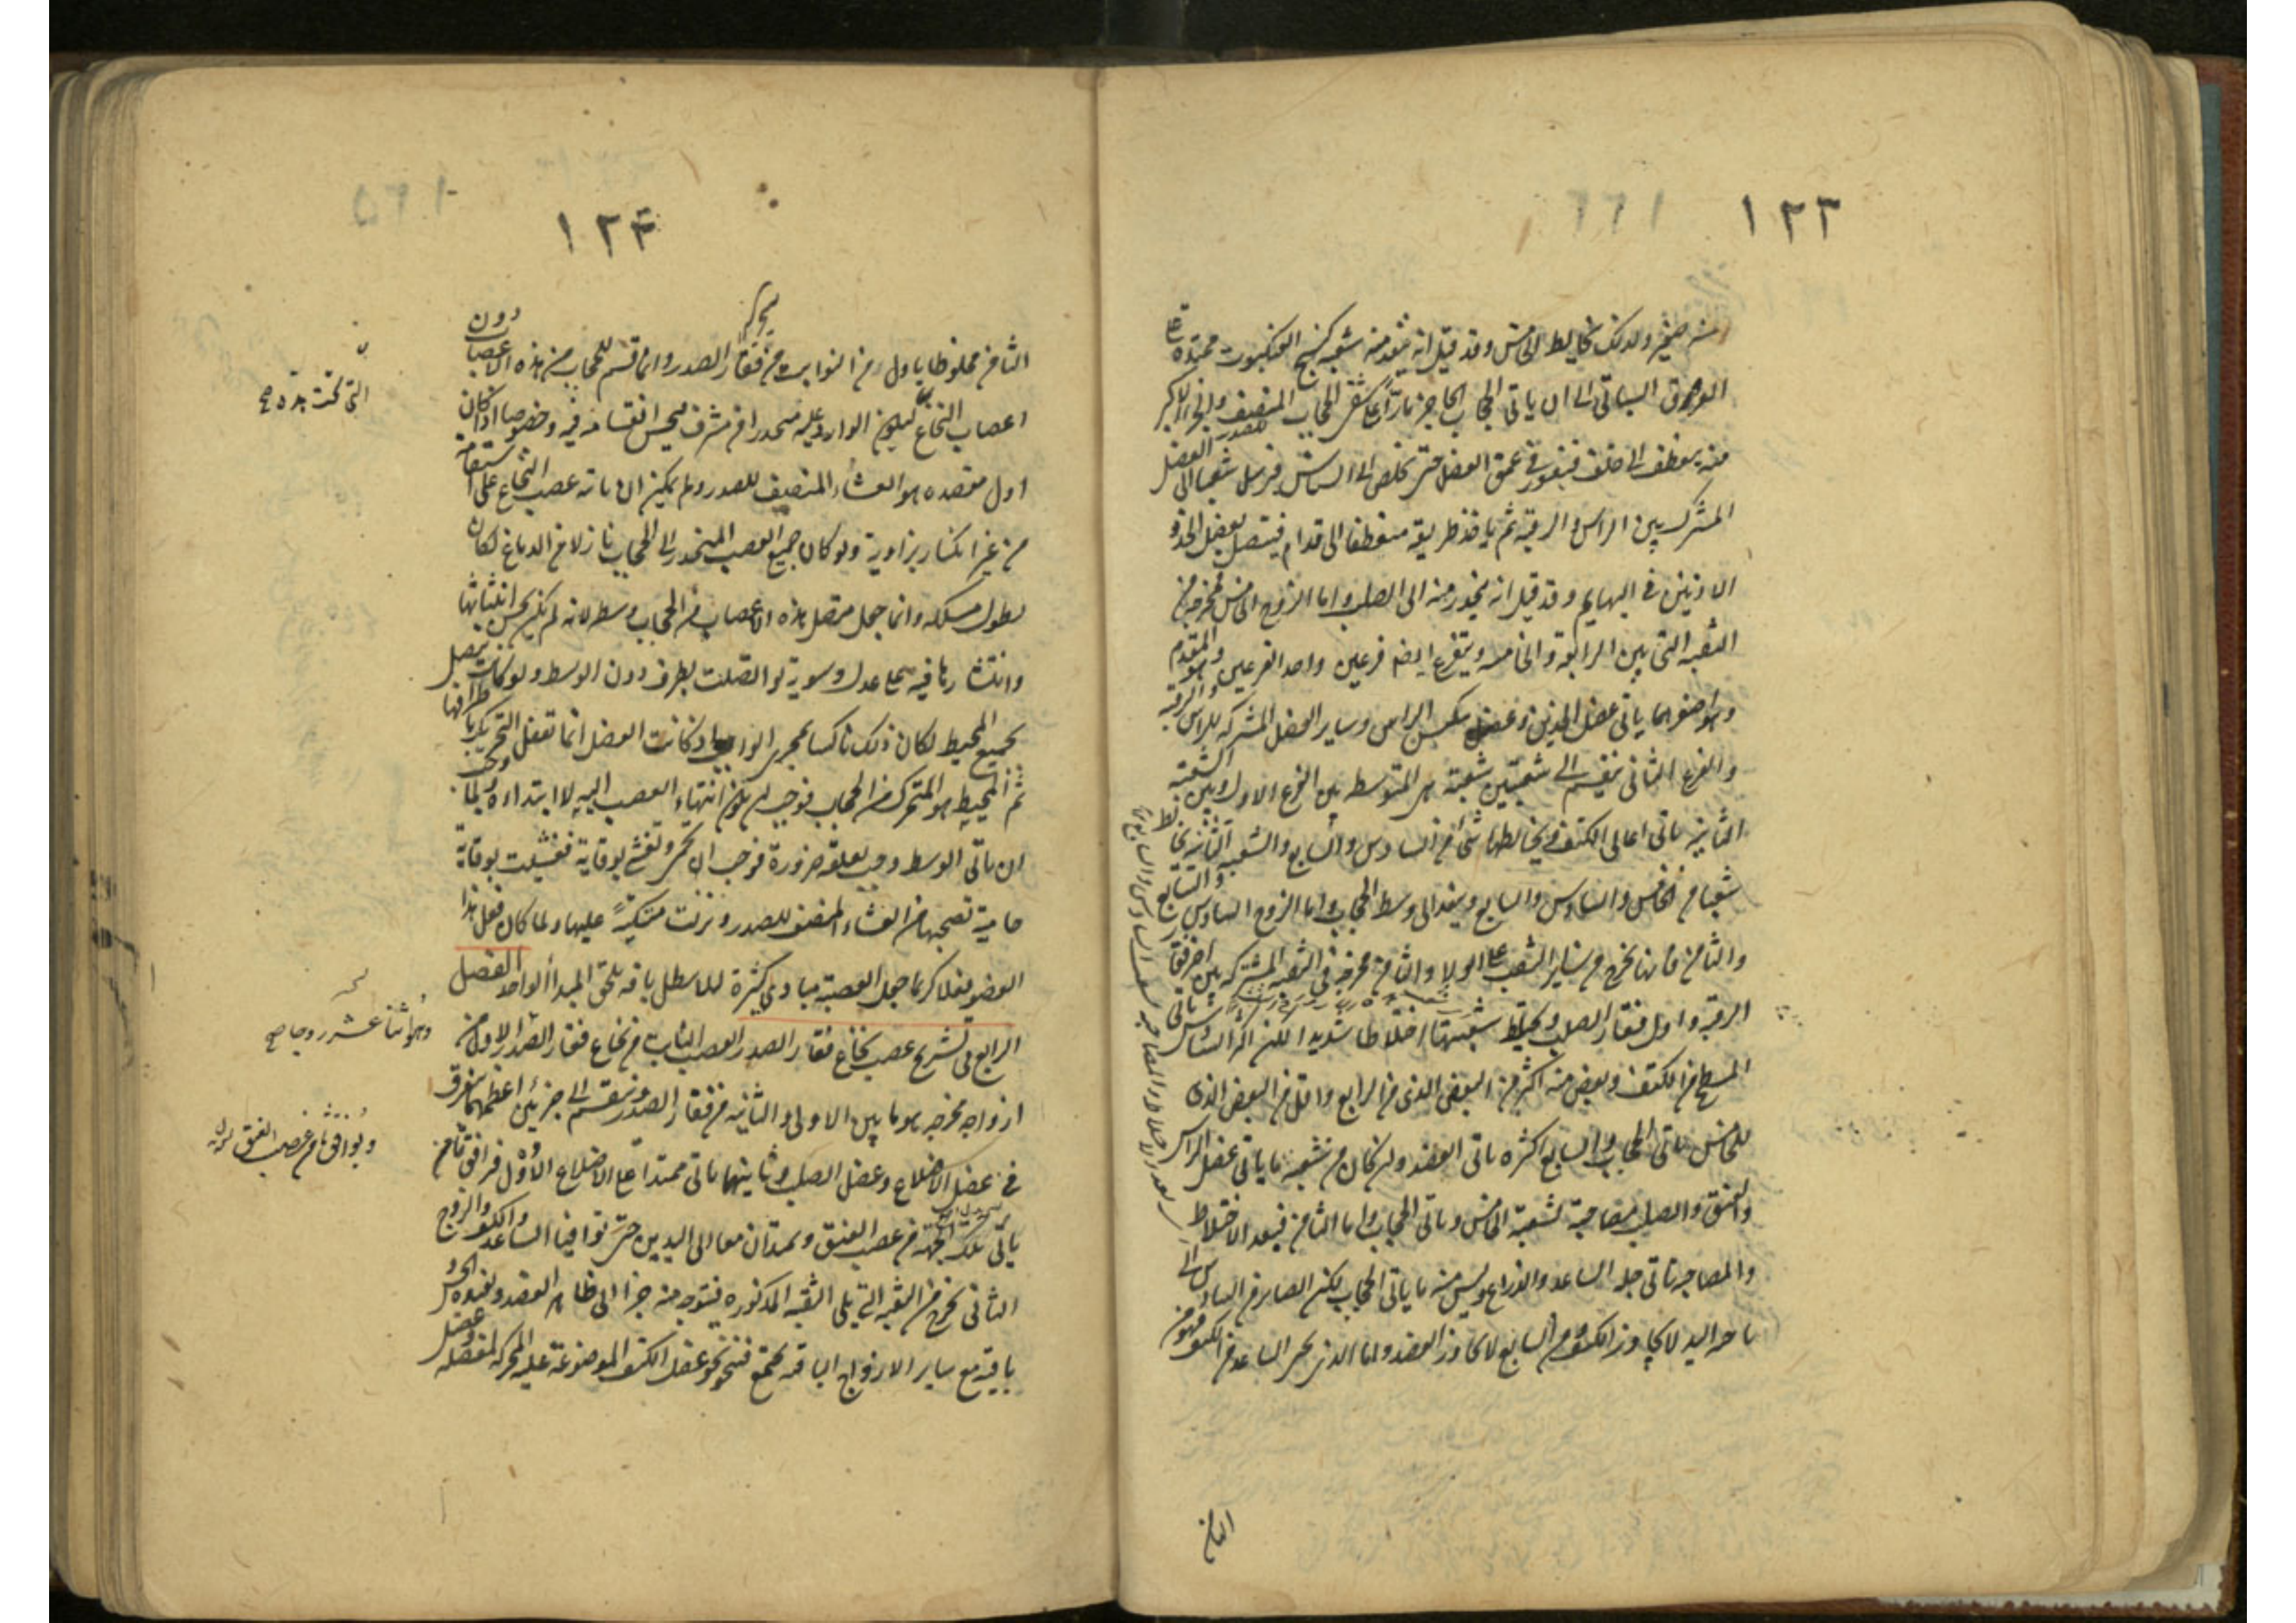 ١٢٣
منه صغير ولذلك يخالط الخامس وقد قيل انه ينفد منه شعبة كنسج العنكبوت ممتدة على
العروق السباتى الى ان ياتى الحجاب الحاجز مارًا على شقى الحجاب المنصف
منه ينعطف الى خلف فيغور فى عمق العضل حتى يخلص الى السناسن ويرسل شعبا الى العضل
المشترك بين الراس والرقبة ثم ياخذ طريقه منعطفا الى قدام فيتصل بعضل الخد و
الاذنين فى البهايم وقد قيل انه ينحدر منه الى الصلب واما الزوج الخامس فمخرجه من
الثقبة التى بين الرابعة والخامسة ويتفرع ايضا فرعين واحد الفرعين وهو المقدم
وهو اصغرهما ياتى عضل الخدين وعضل تنكيس الراس وساير العضل المشتركة للراس والرقبة
والفرع الثانى ينقسم الى شعبتين شعبة هى المتوسط بين الفرع الاول وبين الشعبة
الثانية ياتى اعالى الكتف ويخالطها شئ من السادس والسابع والشعبة الثانية يخالط
شعبا من الخامس والسادس والسابع وينفد الى وسط الحجاب واما الزوج السادس والسابع
والثامن فانها تخرج من ساير الثقب على الولا والثامن مخرجه فى الثقبة المشتركة بين اخر فقار
الرقبة واول فقار الصلب ويختلط شعبتها اختلاطا شديدا لكن اكثر السادس ياتى
السطح من الكتف وبعض منه اكثر من البعض الذى من الرابع واقل من البعض الذى
للخامس ياتى الحجاب والسابع اكثره ياتى العضد وان كان من شعبه ما ياتى عضل الراس
والعنق والصلب مصاحبة لشعبة الخامس وياتى الحجاب واما الثامن فبعد الاختلاط
والمصاحبة ياتى جلد الساعد والذراع وليس منه ما ياتى الحجاب لكن الصاير من السادس الى
ناحية اليد لا يجاوز الكتف ومن السابع لا يجاوز العضد واما الذى يحى الساعد من الكتف فهو من
الثامن
١٢٤
الثامن مخلوطا باول من النوابت من فقار الصدر وانما قسم للحجاب من هذه الاعصاب دون
اعصاب النخاع التى تحت هذه ليكون الوارد عليه منحدرا من مشرف فيحسن انقسامه فيه وخصوصا اذا كان
اول مقصده هو الغشاء المنصف للصدر ولم يكن ان ياته عصب النخاع على استقامة
من غير انكسار بزاوية ولو كان جميع العصب المنحدر الى الحجاب نازلا من الدماغ لكان
يطول مسلكه وانما جعل متصل هذه الاعصاب من الحجاب وسطه لانه لم يكن يحسن انبثاثها
وانتشارها فيه على عدل وسوية لو اتصلت بطرف دون الوسط ولو كانت يتصل
بجميع المحيط لكان ذلك ناكسا لمجرى الواجب اذ كانت العضل انما تفعل التحريك باطرافها
ثم المحيط هو المتحرك من الحجاب فوجب ان يكون انتهاء العصب اليه لا ابتداءه ولما وجب
ان ياتى الوسط وجب تعلقه ضرورة فوجب ان تحمى وتغشى بوقاية فغشيت بوقاية
حامية تصحبها من الغشاء المنصف للصدر ونزلت متكيةً عليها ولما كان فعل هذا
العضو فعلا كريما جعل لعصبه مبادى كثيرة لئلا يبطل بافة تلحق المبدأ الواحد الفصل
الرابع فى تشريح عصب نخاع فقار الصدر العصب النابت من نخاع فقار الصدر الاول من
ازواجه مخرجه هو ما بين الاولى والثانية من فقار الصدر وينقسم الى جزئين اعظمهما يتفرق
فى عضل الاضلاع وعضل الصلب وثانيهما ياتى ممتدا على الاضلاع الاول فيرافق ثامن
عصب العنق ويمتدان معا الى اليدين حتى توافيا الساعد والكف والزوج
الثانى يخرج من الثقبة التى يلى الثقبة المذكورة فيتوجه منه جزء الى ظاهر العضد ويفيده الحس و
باقيه مع ساير الازواج الباقية يجتمع فينحو نحو عضل الكتف الموضوعة عليه المحركة لمفصله وعضل
التى تحت هذه صح
وهو اثنا عشر زوجا صح